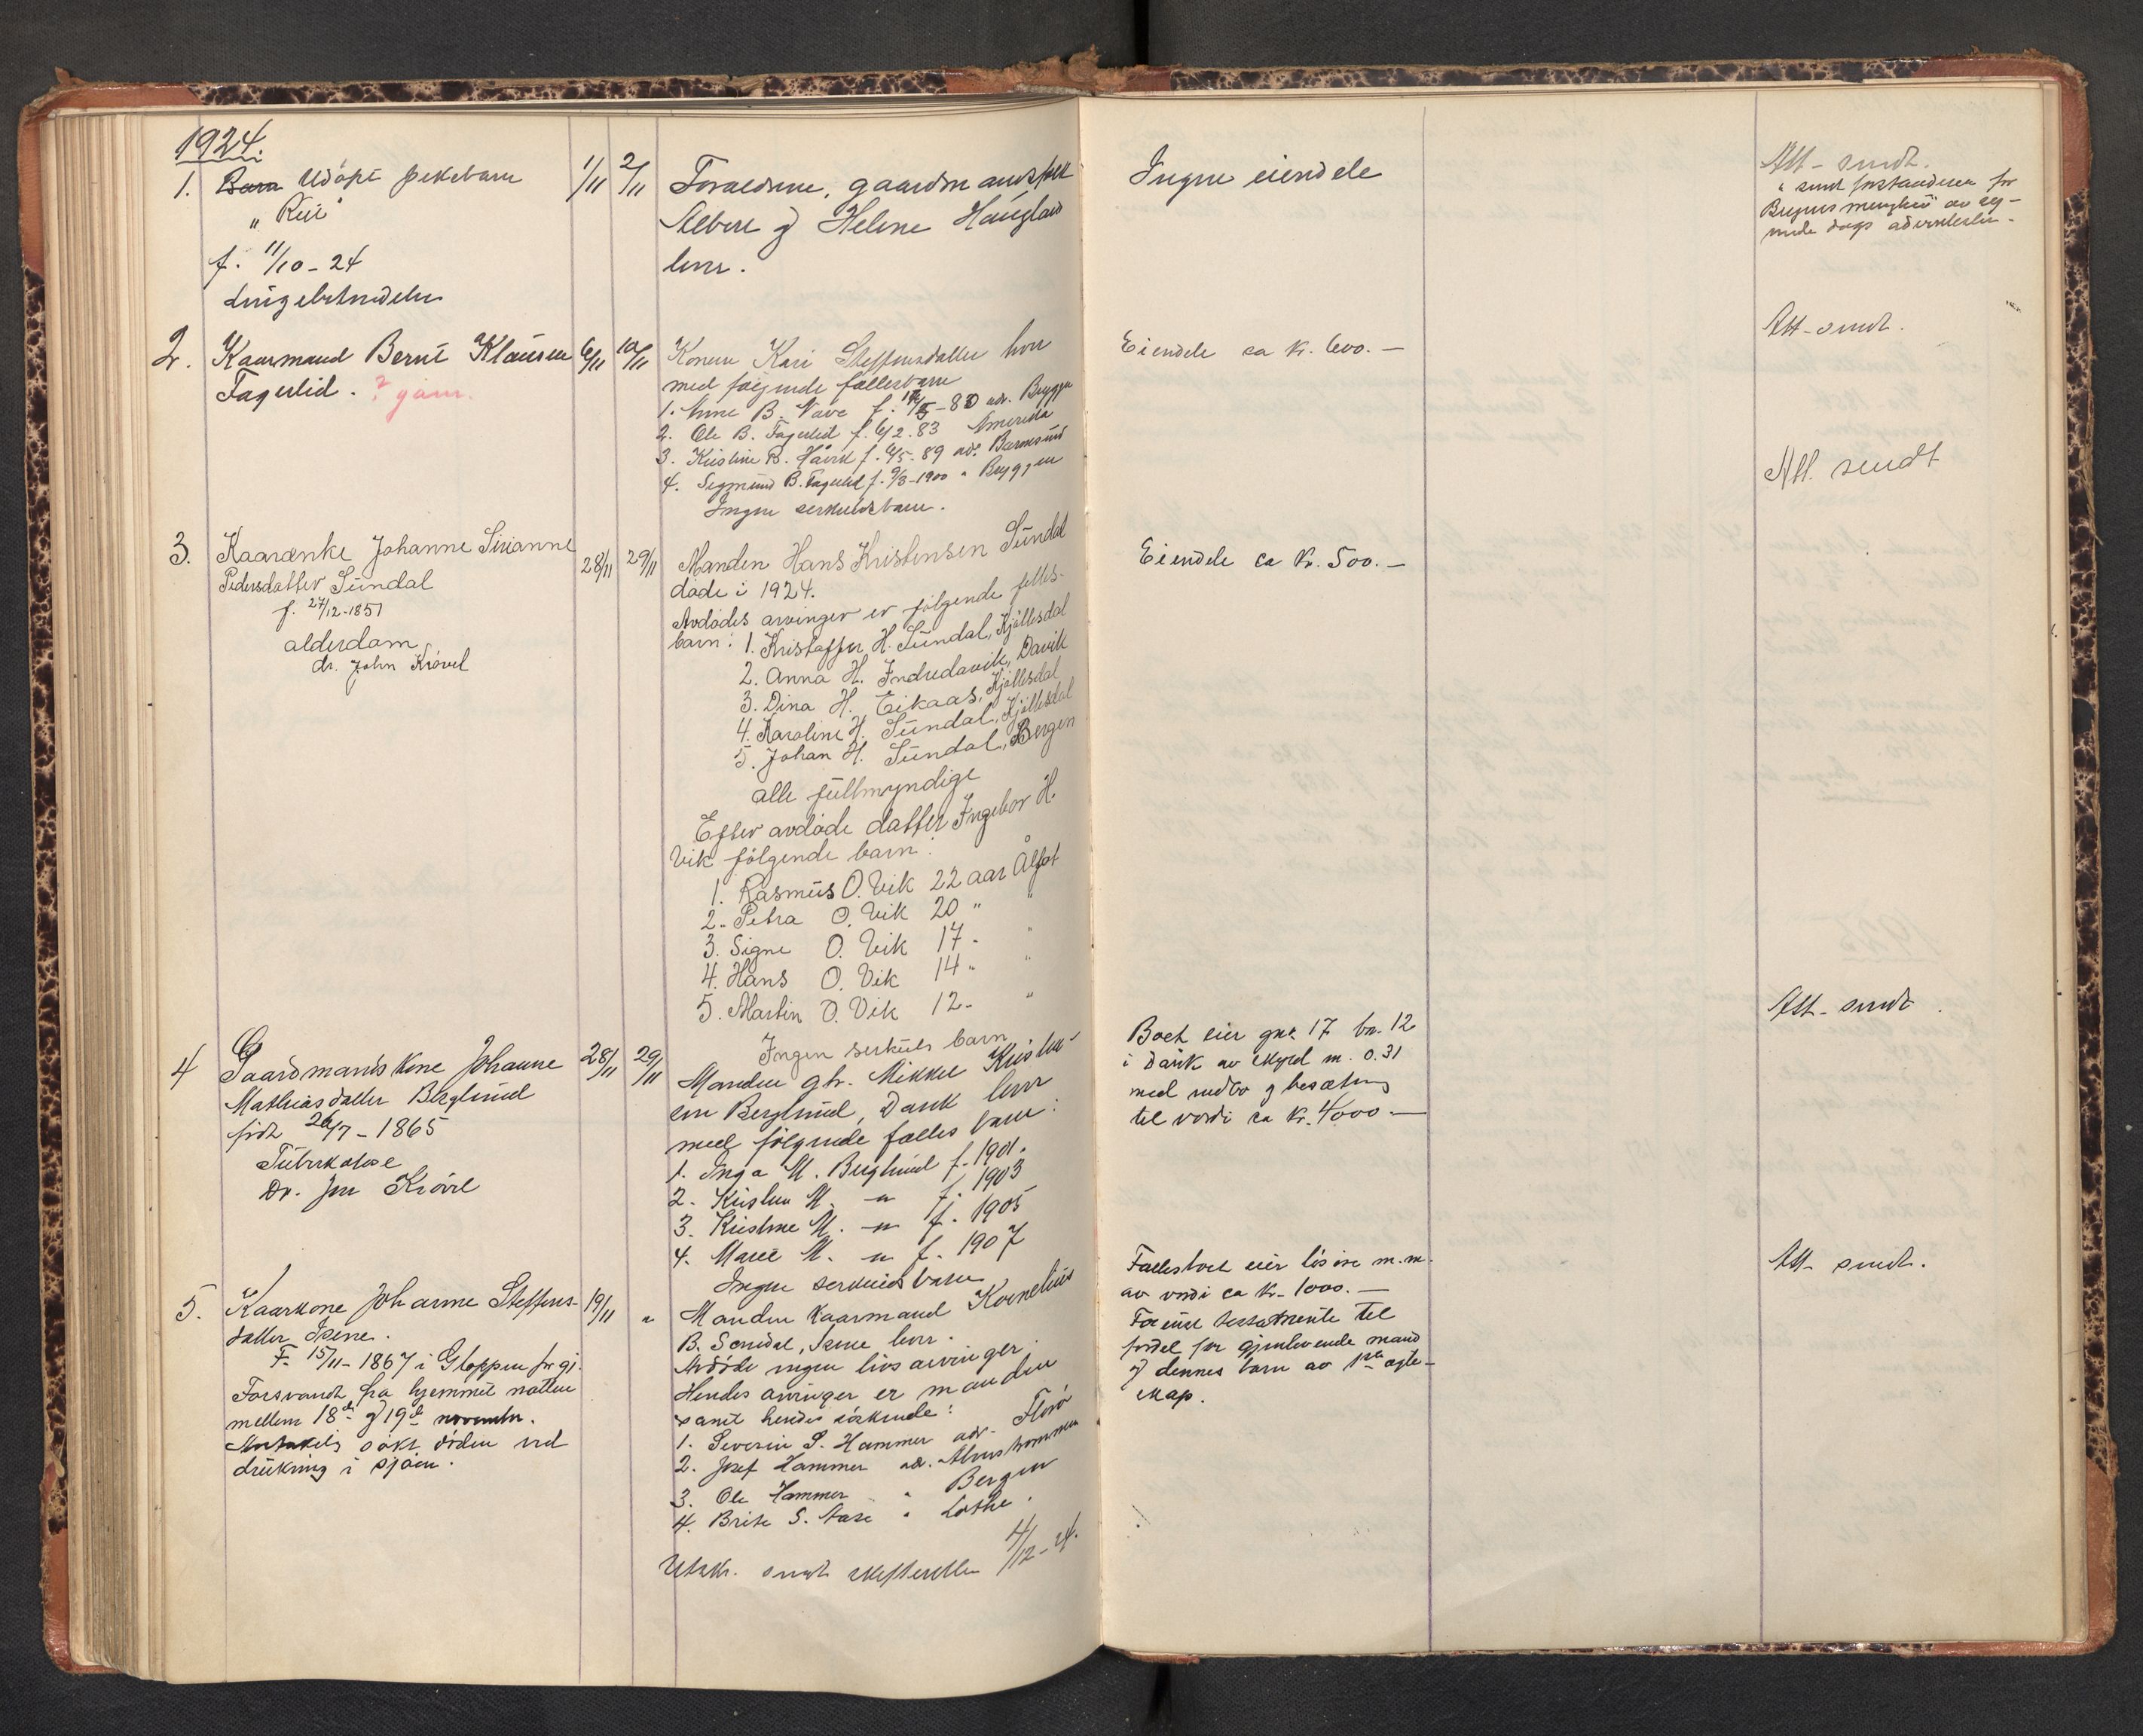 1924.
1. Barn Udöpt pikebarn 1/11 2/11 Foraeldrene, gaardmandsfolk
"Rui" Albert og Helene Haugland
f. 11/10-24 lever.
Lungebetændelse
Ingen eiendele
Att- sendt.
" sendt forstanderen for
Bryggens menighet av sy-
vende dags adventister.
2. Kaarmand Bernt Klausen 6/11 10/11 Konen Kari Steffensdatter lever
Fagerlid. ? gam. med følgende fællesbarn
1. Anne B. Nave f. 14/5-80 adr. Bryggen
2. Ole B. Fagerlid f. 6/2.83 Amerika
3. Kristine B. Håvik f. 6/5-89 adr. Barmsund
4. Sigmund B. Fagerlid f. 9/3-1900 " Bryggen
Ingen serkuldsbarn.
Eiendele ca kr. 600.-
Att-sendt.
Att. sendt
3. Kaarenke Johanne Sirianne 28/11 29/11 Manden Hans Kristensen Sündal
Pedersdatter Sündal døde i 1924.
f. 27/12-1851 Avdødes arvinger er følgende felles-
alderdom barn: 1. Kristoffer H. Sündal, Kjöllesdal
dr. John Krövel 2. Anna H. Indredavik, Davik
3. Dina H. Eikaas, Kjöllesdal
4. Karoline H. Sündal, Kjöllesdal
5. Johan H. Sündal, Bergen
alle füllmyndige
Efter avdøde datter Ingebor H.
Vik følgende barn:
1. Rasmüs O. Vik 22 aar Ålfot
2. Petra O. Vik 20 " "
3. Signe O. Vik 17 - "
4. Hans O. Vik 14 " "
5. Martin O. Vik 12 - "
Ingen serkuls barn
Eiendele ca kr. 500.-
4 Gaardmandskone Johanne 28/11 29/11 Manden gbr. Mikkel Kristen-
Mathiasdatter Berglund sen Berglund, Davik lever
född 26/7-1865 med følgende fælles barn:
Tüberkulose 1. Inga M. Berglund f. 1901.
Dr. Jon Krövel 2. Kristen M. -"- f. 1903
3. Kristine M. -"- f. 1905
4. Marie M. -"- f. 1907
Ingen serkuldsbarn
Boet eier gnr. 17 bn. 12
i Davik av skyld m. 0.31
med indbo og besætning
til værdi ca kr. 4000-
Att- sendt
5. Kaarkone Johanne Steffens- 19/11 " Manden kaarmand Kornelius
datter Isene. B. Sördal, Isene lever.
F. 15/11-1867 i Gloppen prgj. Avdøde ingen livsarvinger.
Forsvandt fra hjemmet natten Hendes arvinger er manden
mellem 18de og 19de november. samt hendes söskende:
Antakelig søkt døden ved 1. Severin S. Hammer adr. Florö
drukning i sjøen. 2. Josef Hammer adr.
3. Ole Hammer " Bergen
4. Brite S. Aase " Lothe.
Utskr. sendt skifteretten 4/12-24.
Fællesboet eier løsøre m.m.
av værdi ca kr. 1000.-
Foreviist testamente til
fordel for gjenlevende mand
og dennes barn av 1ste ægte-
skap.
Att- sendt.